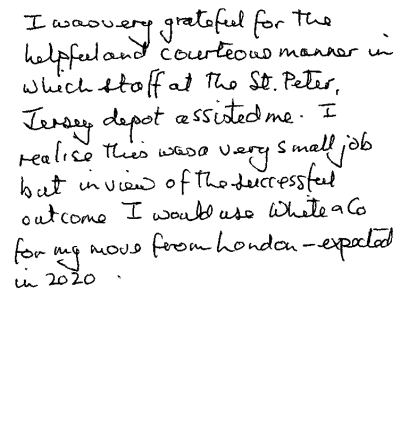 I was very grateful for the
helpful and courteous manner in
which staff at the St. Peter,
Jersey depot assisted me. I
realise this was a very small job
but in view of the successful
outcome I would use White & Co
for my move from London - expected
in 2020.